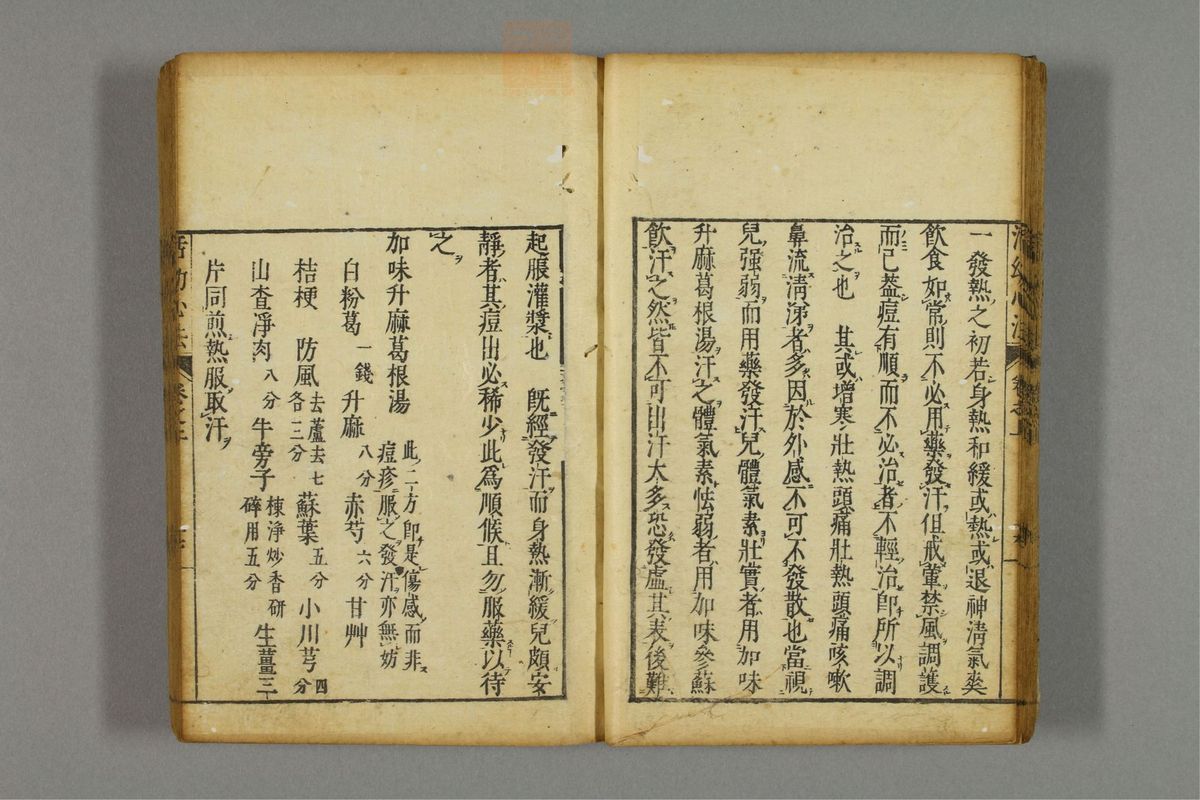 一發熱之初若身熱和緩或熱或退神淸氣爽
飮食如常則不必用藥發汗但戒葷禁風調護
而已葢痘有順而不必治者不輕治卽所以調
治之也　其或增寒壯熱頭痛壯熱頭痛咳嗽
鼻流淸涕者多因於外感不可不發散也當視
兒强弱而用藥發汗兒體氣素壯實者用加味
升麻葛根湯汗之體氣素怯弱者用加味參蘇
飮汗之然皆不可出汗太多恐發虛其表後難
起脹灌漿也　旣經發汗而身熱漸緩兒頗安
靜者其痘出必稀少此爲順候且勿服藥以待
之
加味升麻葛根湯　此二方卽是傷感而非
痘疹服之發汗亦無妨
白粉葛一錢　升麻八分　赤芍六分　甘艸
桔梗　防風去蘆去七各三分　蘇葉五分　小川芎四分
山查淨肉八分　牛旁子揀淨炒香研碎用五分　生薑三
片同煎熱服取汗
活幼心法　卷之